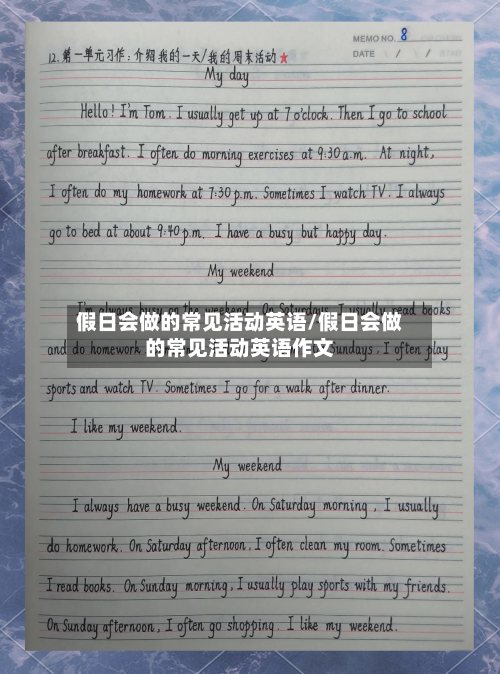 MEMO NO. 8
12. 第一单元习作：介绍我的一天/我的周末活动★
DATE / /
My day
Hello! I'm Tom. I usually get up at 7 o'clock. Then I go to school
after breakfast. I often do morning exercises at 9:30 a.m. At night,
I often do my homework at 7:30 p.m. Sometimes I watch TV. I always
go to bed at about 9:40 p.m. I have a busy but happy day.
My weekend
I'm always busy on the weekend. On Saturdays, I usually read books
假日会做的常见活动英语/假日会做
and do homework Sundays, I often play
的常见活动英语作文
sports and watch TV. Sometimes I go for a walk after dinner.
I like my weekend.
My weekend
I always have a busy weekend. On Saturday morning, I usually
do homework. On Saturday afternoon, I often clean my room. Sometimes
I read books. On Sunday morning, I usually play sports with my friends.
On Sunday afternoon, I often go shopping. I like my weekend.